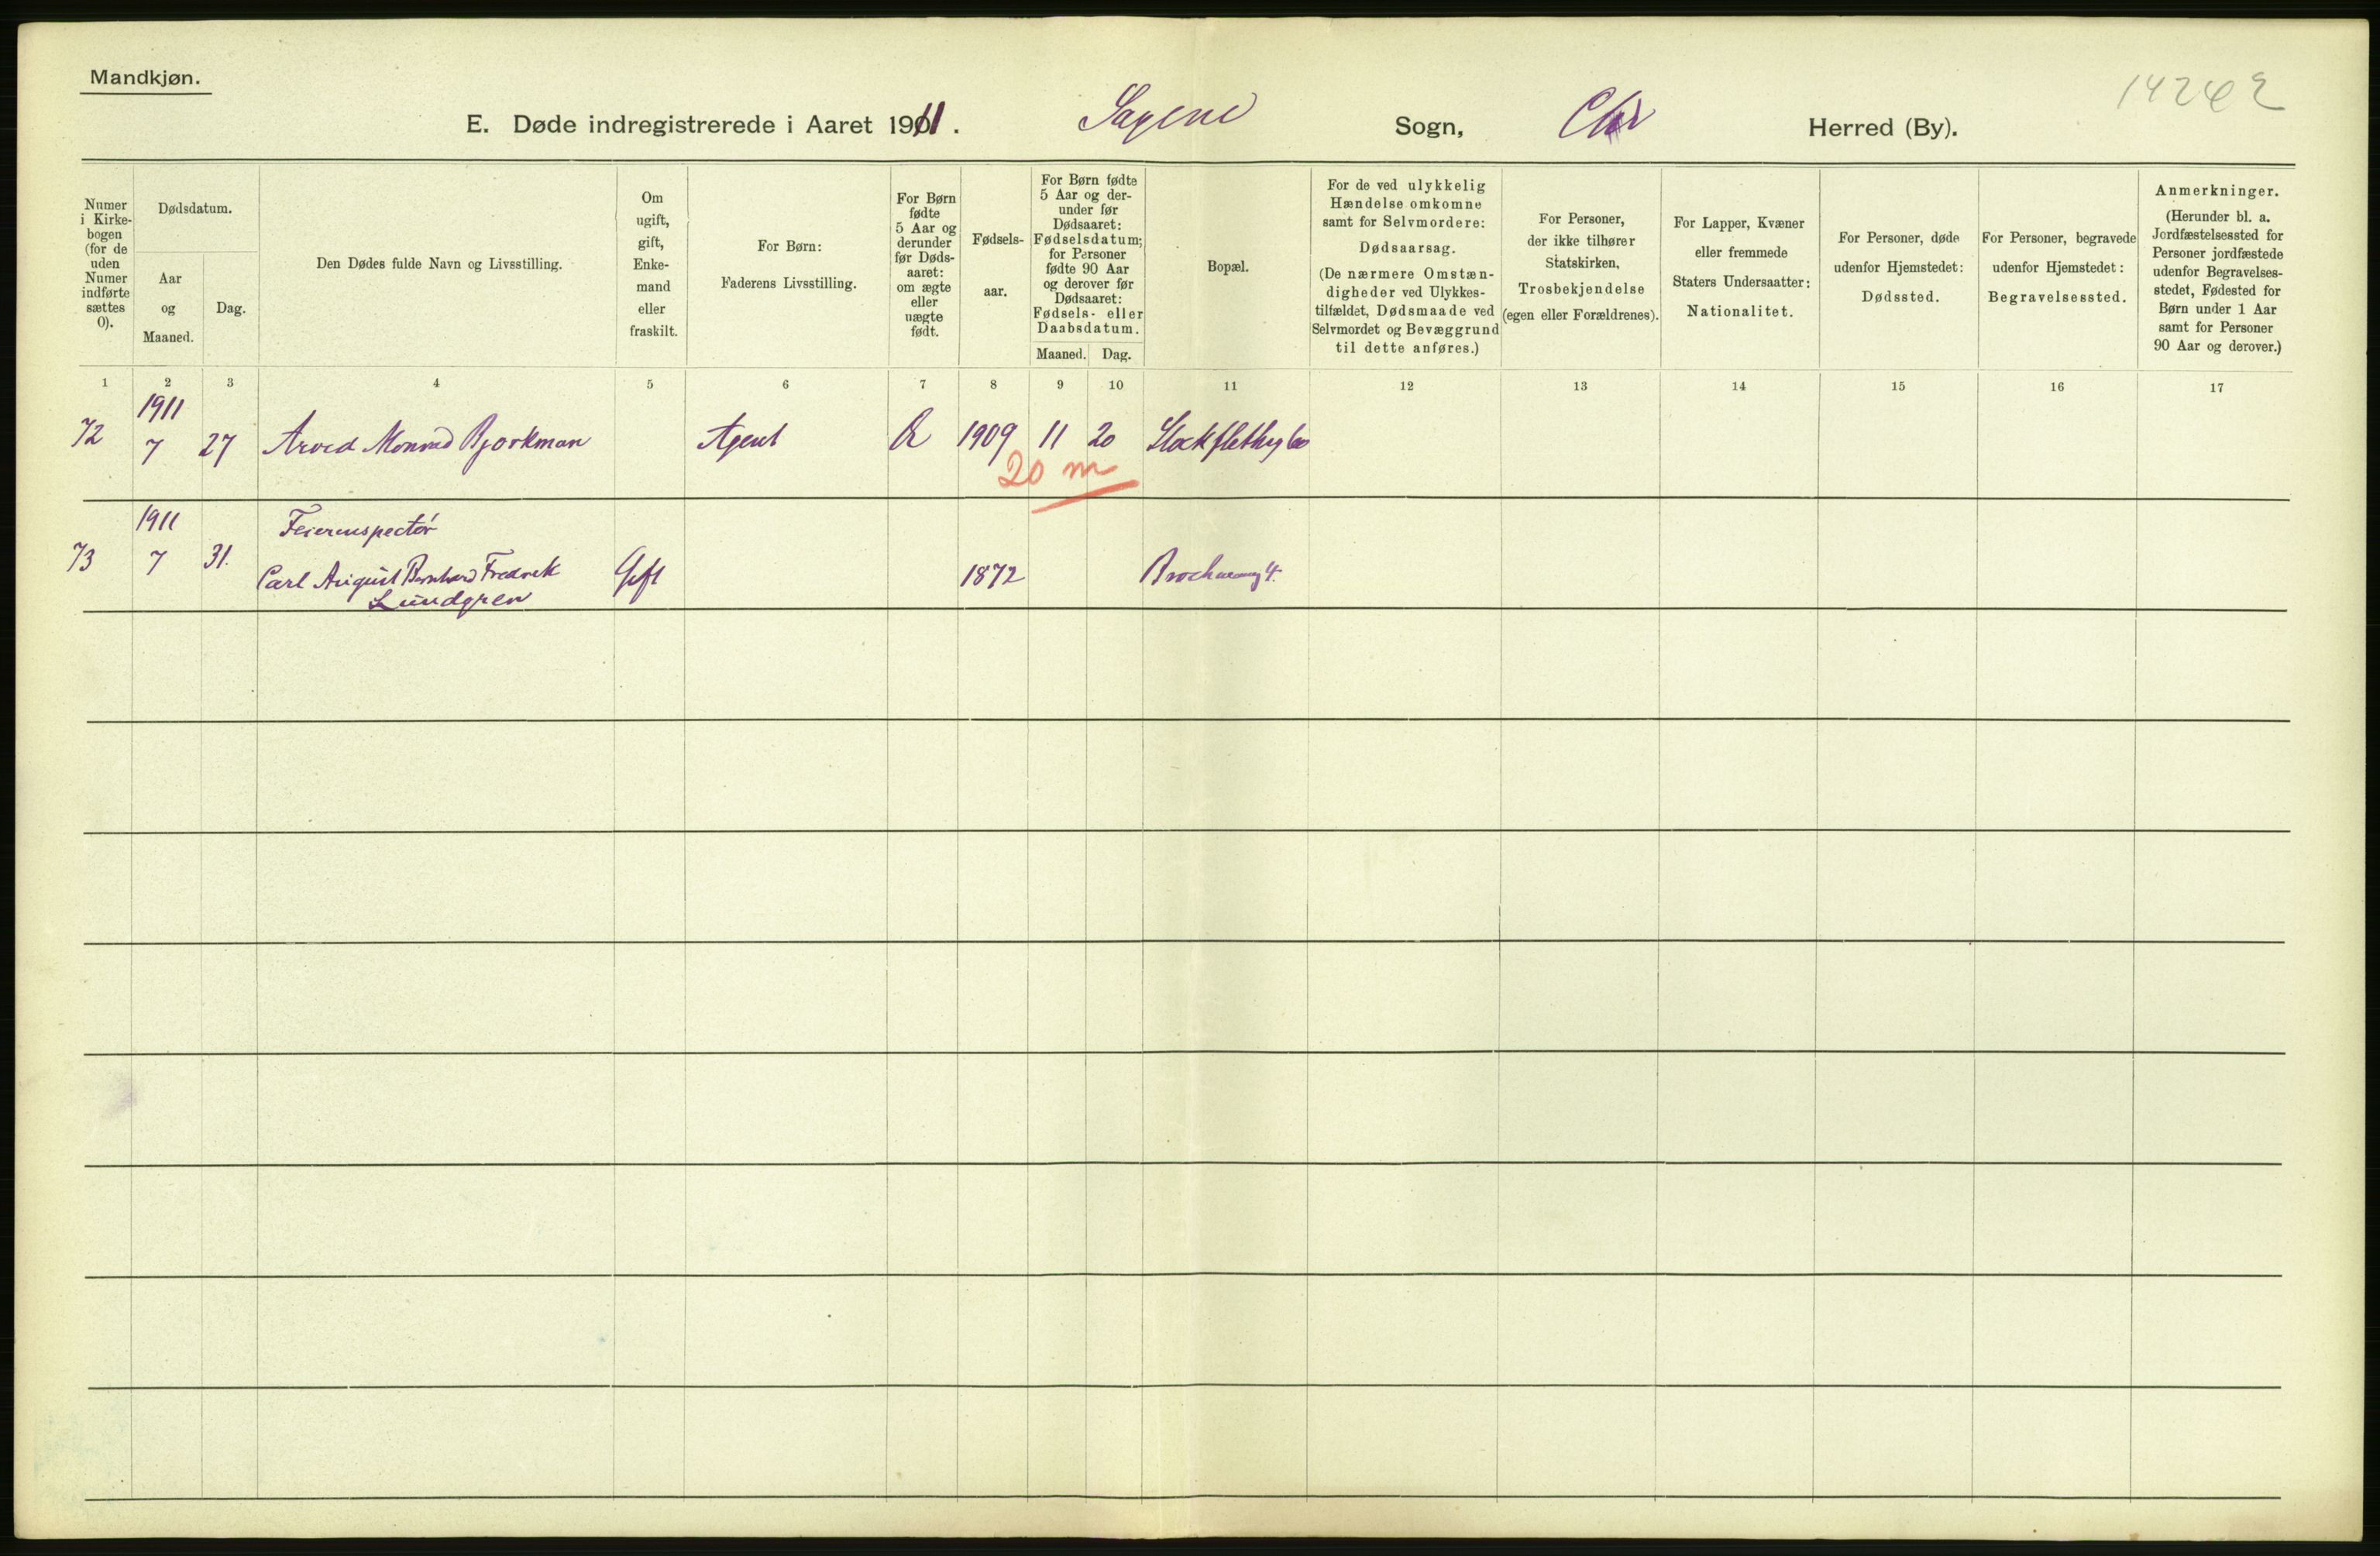 Mandkjøn.
14242
E. Døde indregistrerede i Aaret 1911. Sagene Sogn, Chr Herred (By).
Numer i Kirkebogen (for de uden Numer indførte sættes 0).
Dødsdatum.
Aar og Maaned.
Dag.
Den Dødes fulde Navn og Livsstilling.
Om ugift, gift, Enkemand eller fraskilt.
For Børn: Faderens Livsstilling.
For Børn fødte 5 Aar og derunder før Dødsaaret: om ægte eller uægte født.
Fødselsaar.
For Børn fødte 5 Aar og derunder før Dødsaaret: Fødselsdatum; for Personer fødte 90 Aar og derover før Dødsaaret: Fødsels- eller Daabsdatum.
Maaned. Dag.
Bopæl.
For de ved ulykkelig Hændelse omkomne samt for Selvmordere: Dødsaarsag. (De nærmere Omstændigheder ved Ulykkestilfældet, Dødsmaade ved Selvmordet og Bevæggrund til dette anføres.)
For Personer, der ikke tilhører Statskirken, Trosbekjendelse (egen eller Forældrenes).
For Lapper, Kvæner eller fremmede Staters Undersaatter: Nationalitet.
For Personer, døde udenfor Hjemstedet: Dødssted.
For Personer, begravede udenfor Hjemstedet: Begravelsessted.
Anmerkninger. (Herunder bl. a. Jordfæstelsessted for Personer jordfæstede udenfor Begravelsesstedet, Fødested for Børn under 1 Aar samt for Personer 90 Aar og derover.)
1 2 3 4 5 6 7 8 9 10 11 12 13 14 15 16 17
1911
72 7 27 Arvid Monrad Bjorkman Agent Æ 1909 11 20
20 m
1911 Feierinspectør
73 7 31. Carl August Bernhard Fredrik Gift 1872
Lundgren